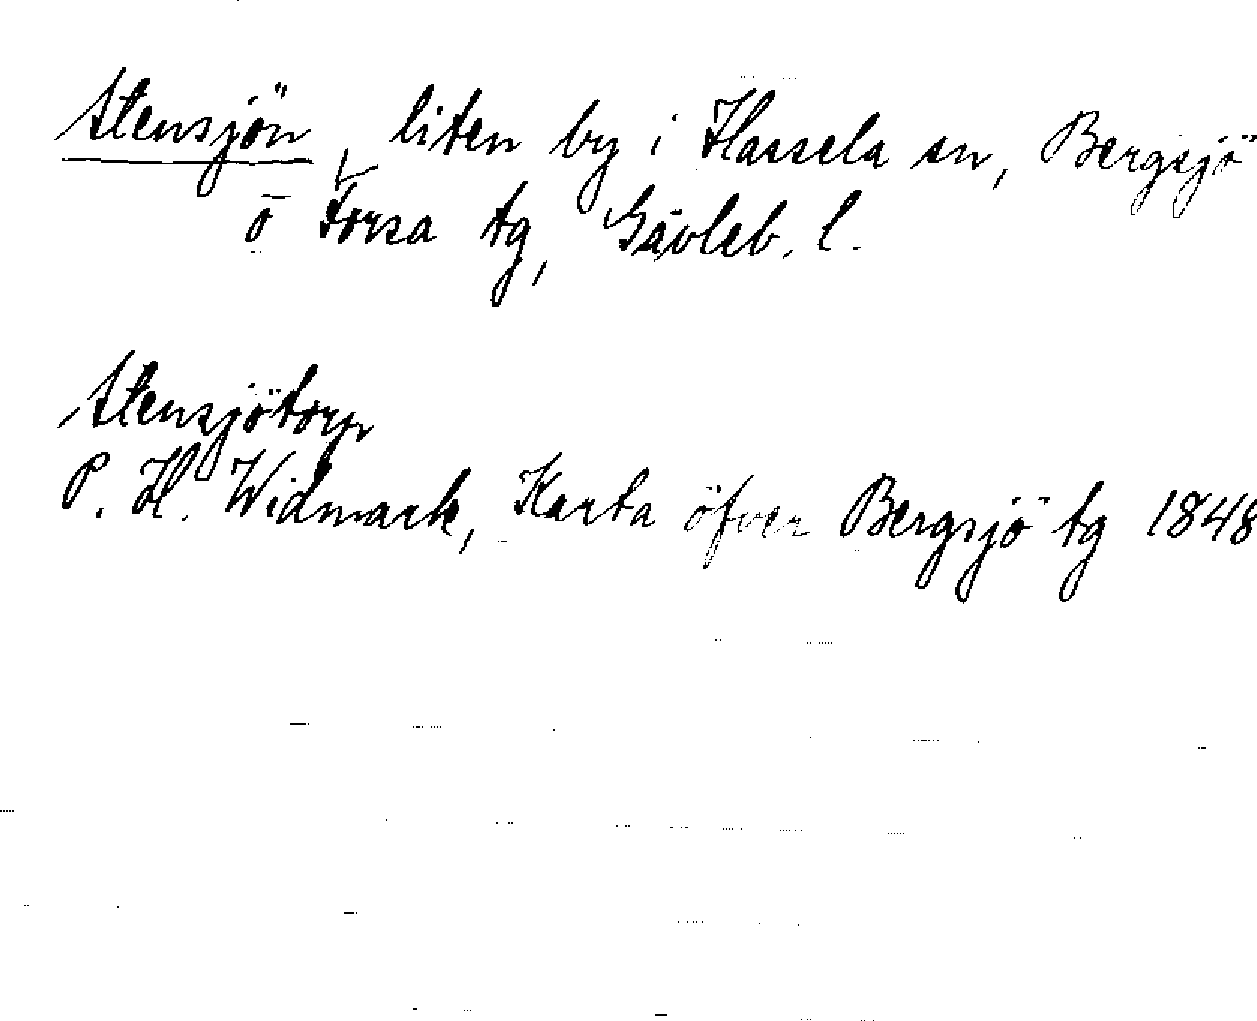 Stensjön, liten by i Hassela sn, Bergsjö
o Forsa tg, Gävleb. l.
Stensjötorp
P. H. Widmark, Karta öfver Bergsjö tg 1848